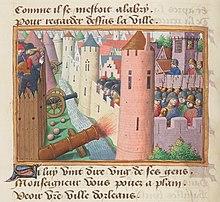 Comme il se mestoit a labry.
Pour regarder dessus la ville.
Illuy vint dire vng de ses gens
Monseigneur vous poues a plain
Veoir vre ville dorleans.